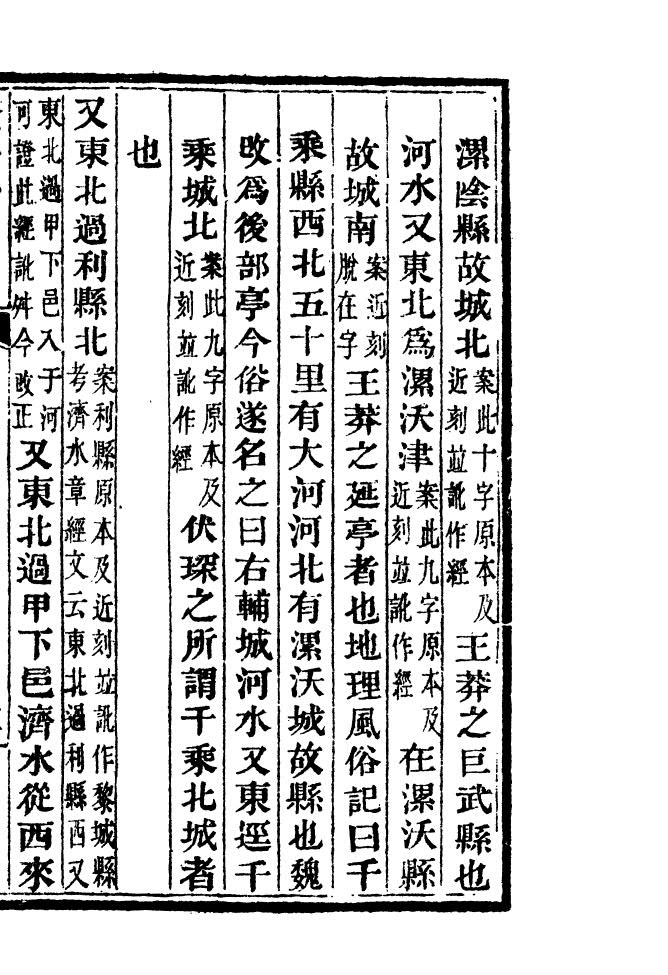 漯陰縣故城北案此十字原本及近刻並訛作經王莽之巨武縣也
河水又東北爲漯沃津案此九字原本及近刻並訛作經在漯沃縣
故城南案近刻脫在字王莽之延亭者也地理風俗記曰千
乘縣西北五十里有大河河北有漯沃城故縣也魏
改爲後部亭今俗遂名之曰右輔城河水又東逕千
乘城北案此九字原本及近刻並訛作經伏琛之所謂千乘北城者
也
又東北過利縣北案利縣原本及近刻並訛作黎城縣考濟水章經文云東北過利縣西又
東北過甲下邑入于河可證此經訛舛今改正又東北過甲下邑濟水從西來